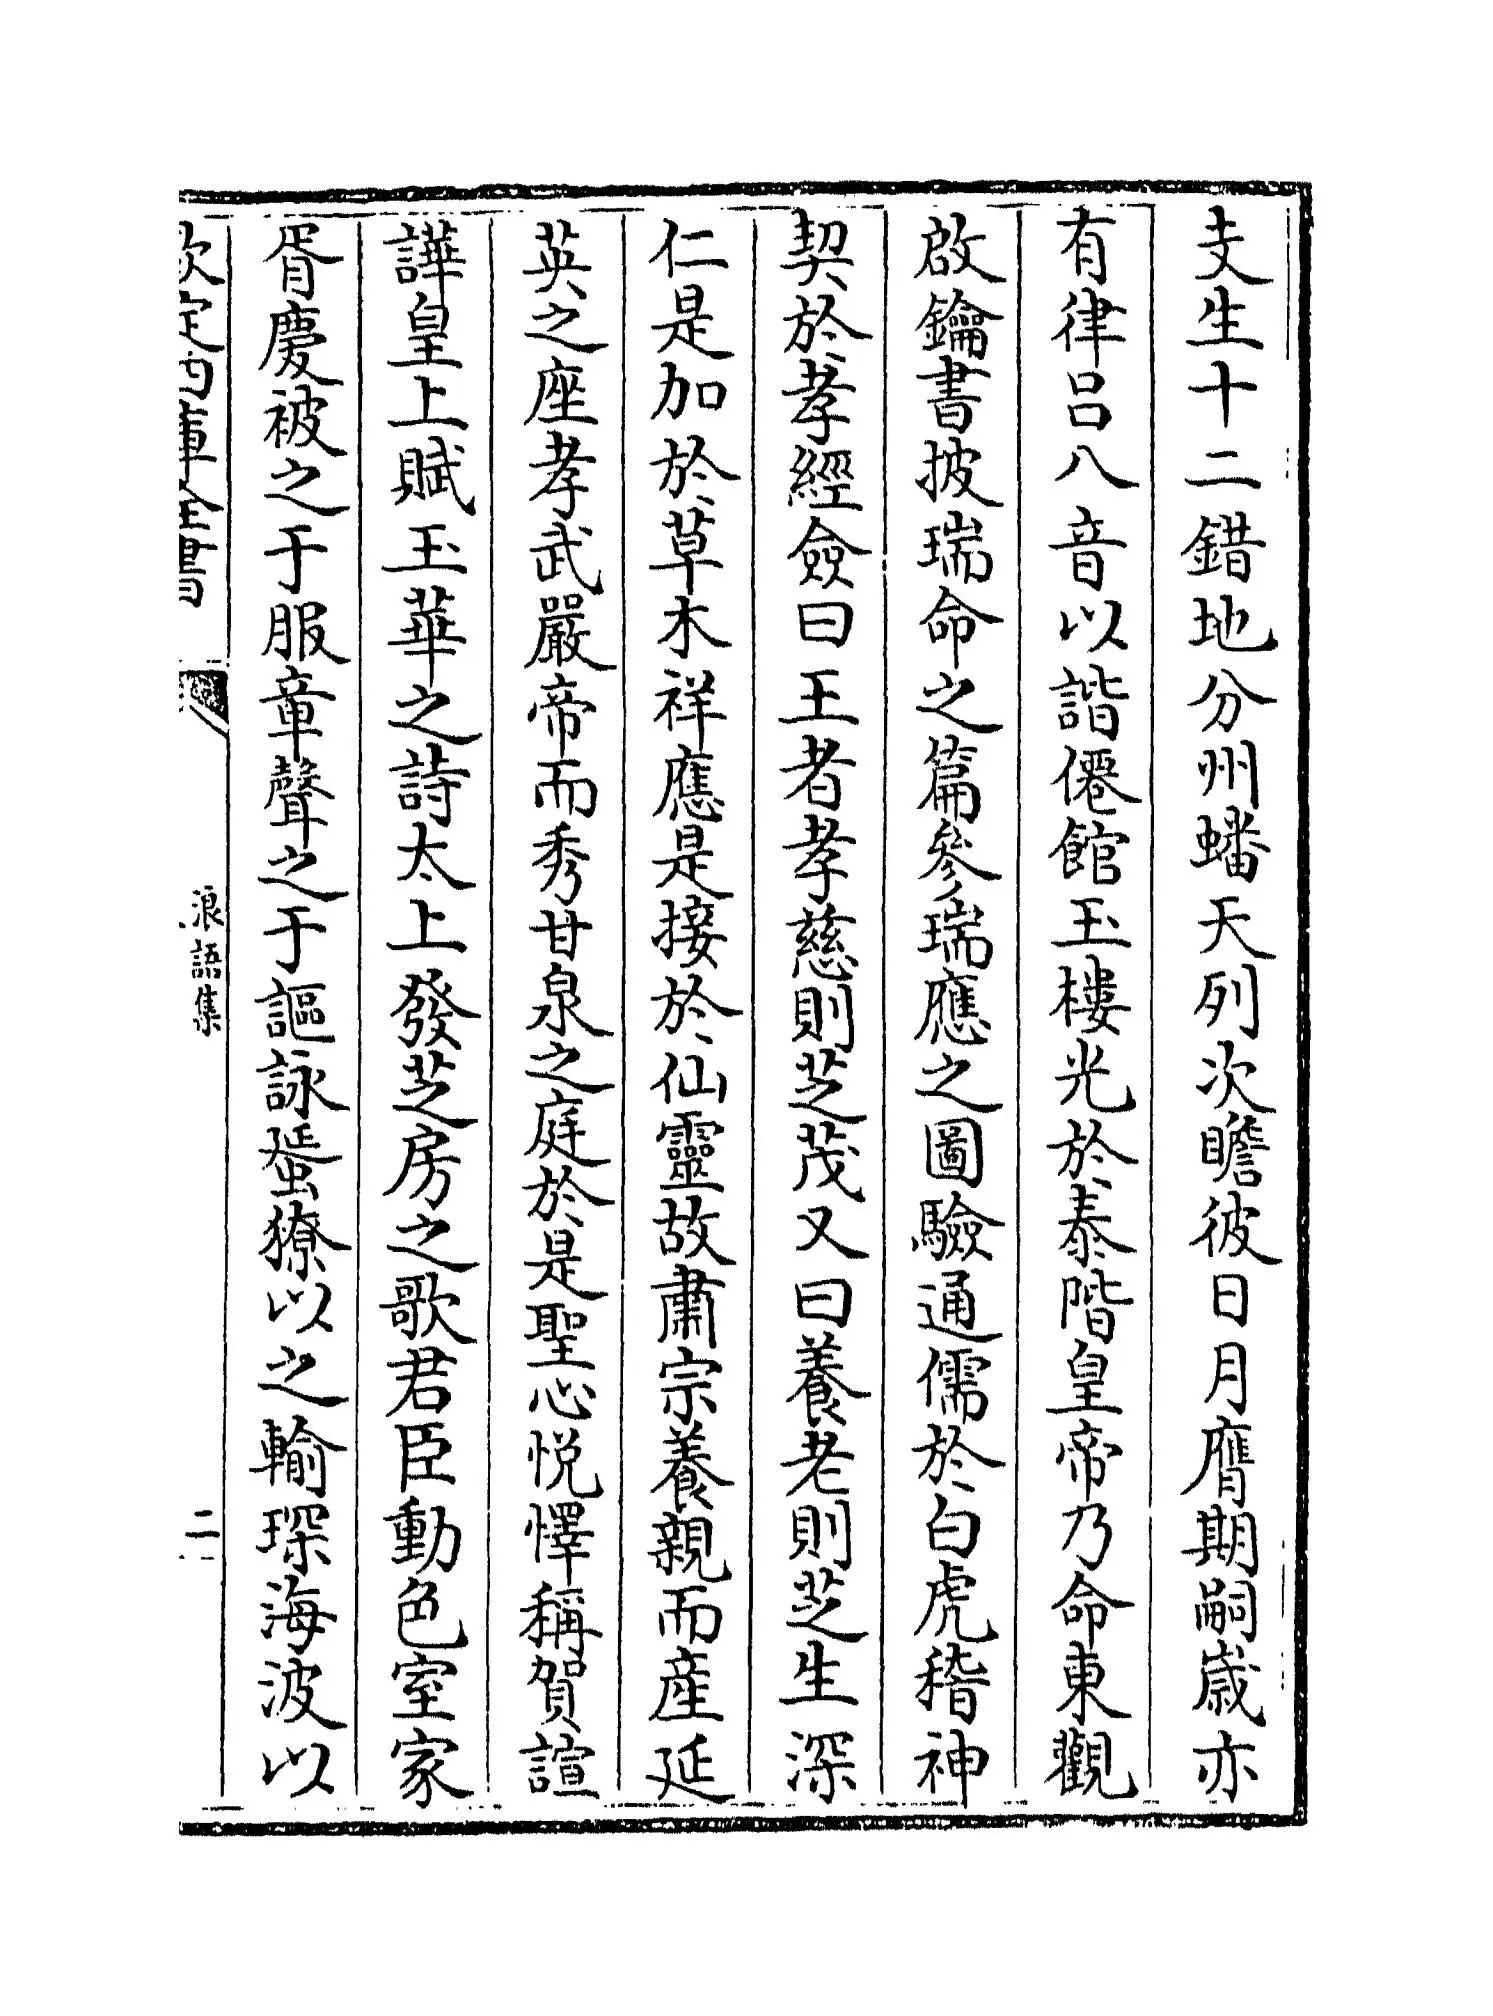 支生十二錯地分州蟠天列次瞻彼日月膺期嗣嵗亦
有律呂八音以諧僊館玉樓光於泰階皇帝乃命東觀
啟鑰書披瑞命之篇參瑞應之圖驗通儒於白虎稽神
契於孝經僉曰王者孝慈則芝茂又曰養老則芝生深
仁是加於草木祥應是接於仙靈故肅宗養親而產延
英之座孝武嚴帝而秀甘泉之庭於是聖心悅懌稱賀諠
譁皇上賦玉華之詩太上發芝房之歌君臣動色室家
胥慶被之于服章聲之于謳詠蜑獠以之輸琛海波以
欽定四庫全書
浪語集
二